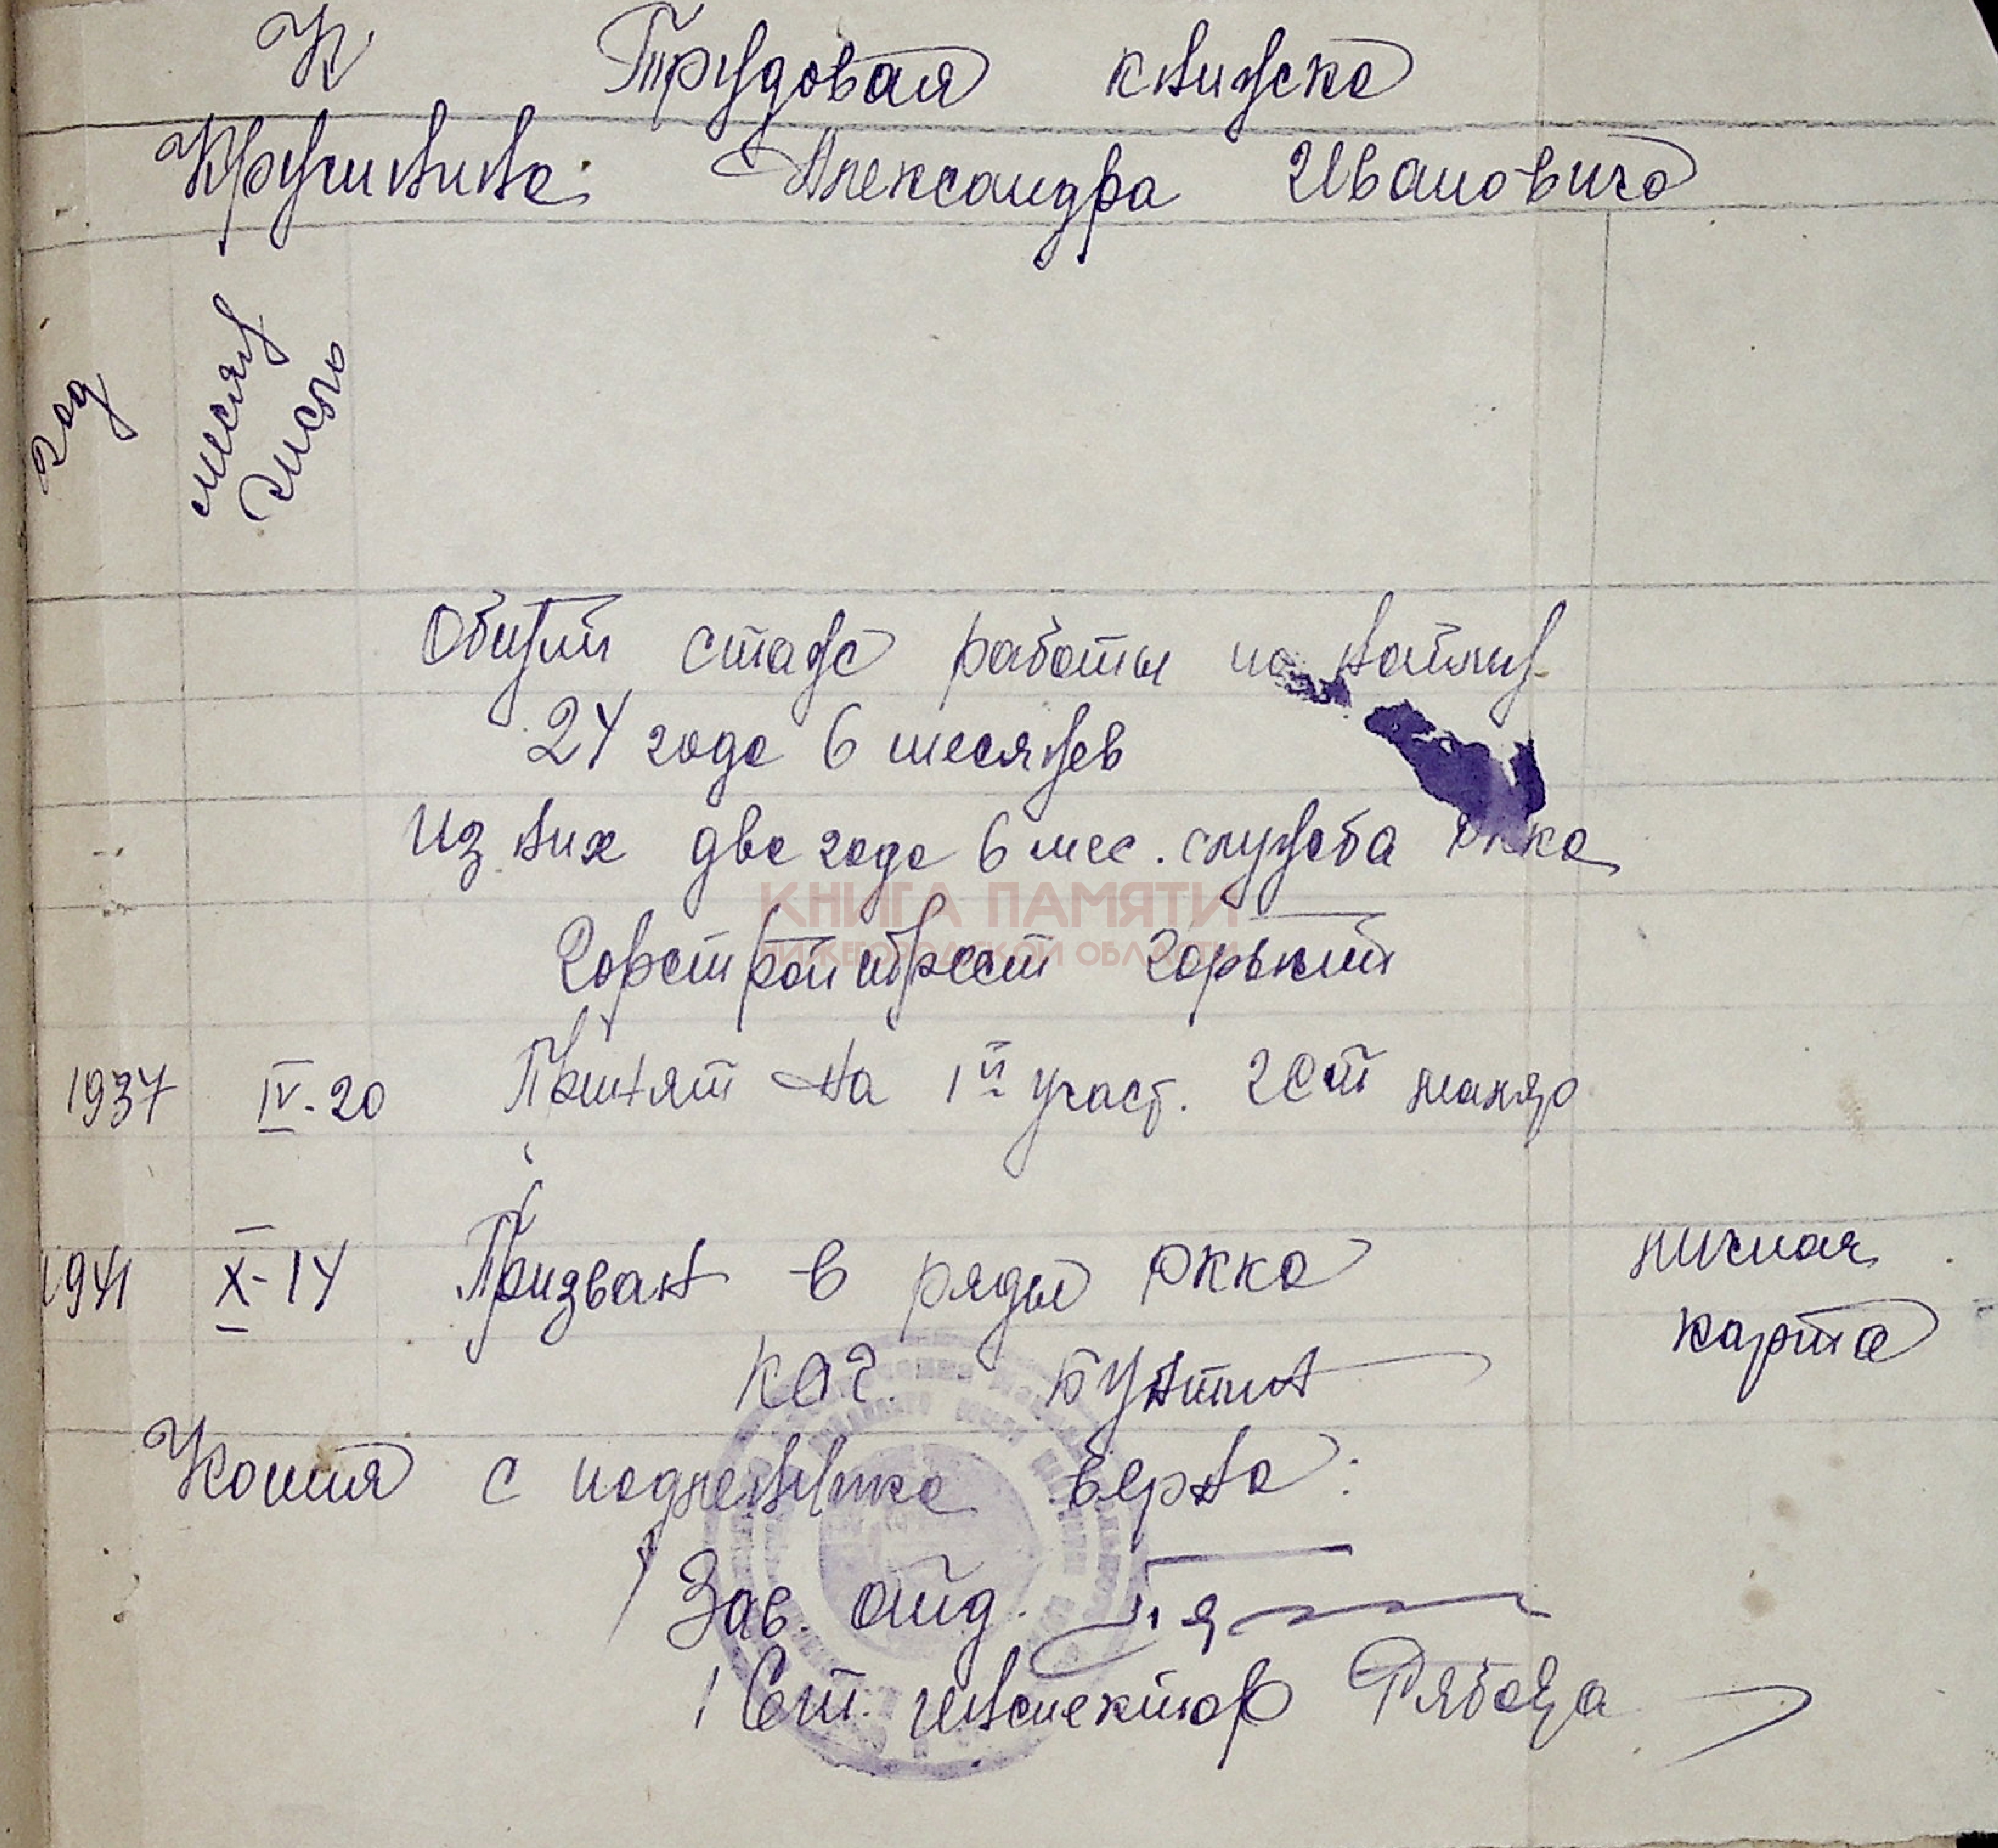 К Трудовая книжка
Кручинина Александра Ивановича
год
месяц
число
Общий стаж работы по найму
24 года 6 месяцев
из них два года 6 мес. служба РККА
КНИГА ПАМЯТИ
НИЖЕГОРОДСКОЙ ОБЛАСТИ
Горстройтрест Горький
1937 IV-20 Принят на 1й участ. ГСТ
1941 X-14 Призван в ряды РККА личная
карта
Копия с подлинника верна:
Зав.
Ст. инспектор